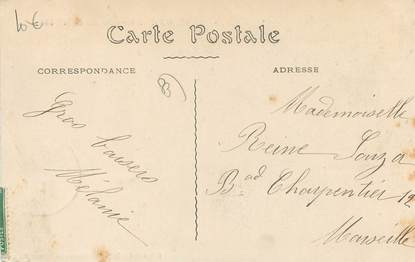 10€
Carte Postale
CORRESPONDANCE
ADRESSE
Gros baisers
Mélanie
Mademoiselle
Reine Souza
Bad Charpentier 12
Marseille